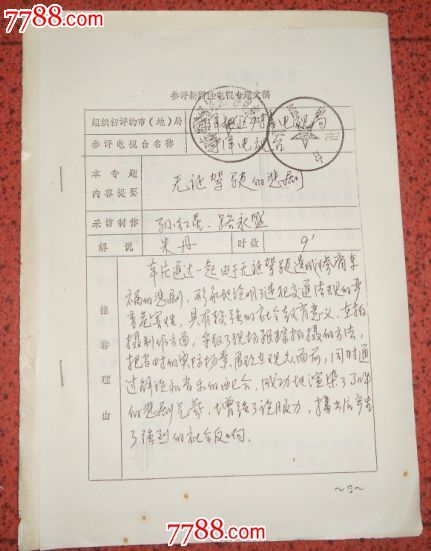 7788.com
参评新闻性电视专题文稿
组织初评的市(地)局
参评电视台名称
电视台
本专题
内容提要
无证驾驶的悲剧
采访制作
孙红星、路永盛
解说
朱丹
时长
9'
推荐理由
本片通过一起由于无证驾驶造成惨痛车
祸的悲剧,形象地说明了违犯交通法规的严
重危害性,具有较强的社会教育意义,在拍
摄制作方面,采取了现场跟踪拍摄的方法,
把当时的实际场景,展现在观众面前,同时通
过解说和音乐的配合,成功地渲染了
的悲剧气氛,增强了说服力,播出后产生
了强烈的社会反响。
7788.com